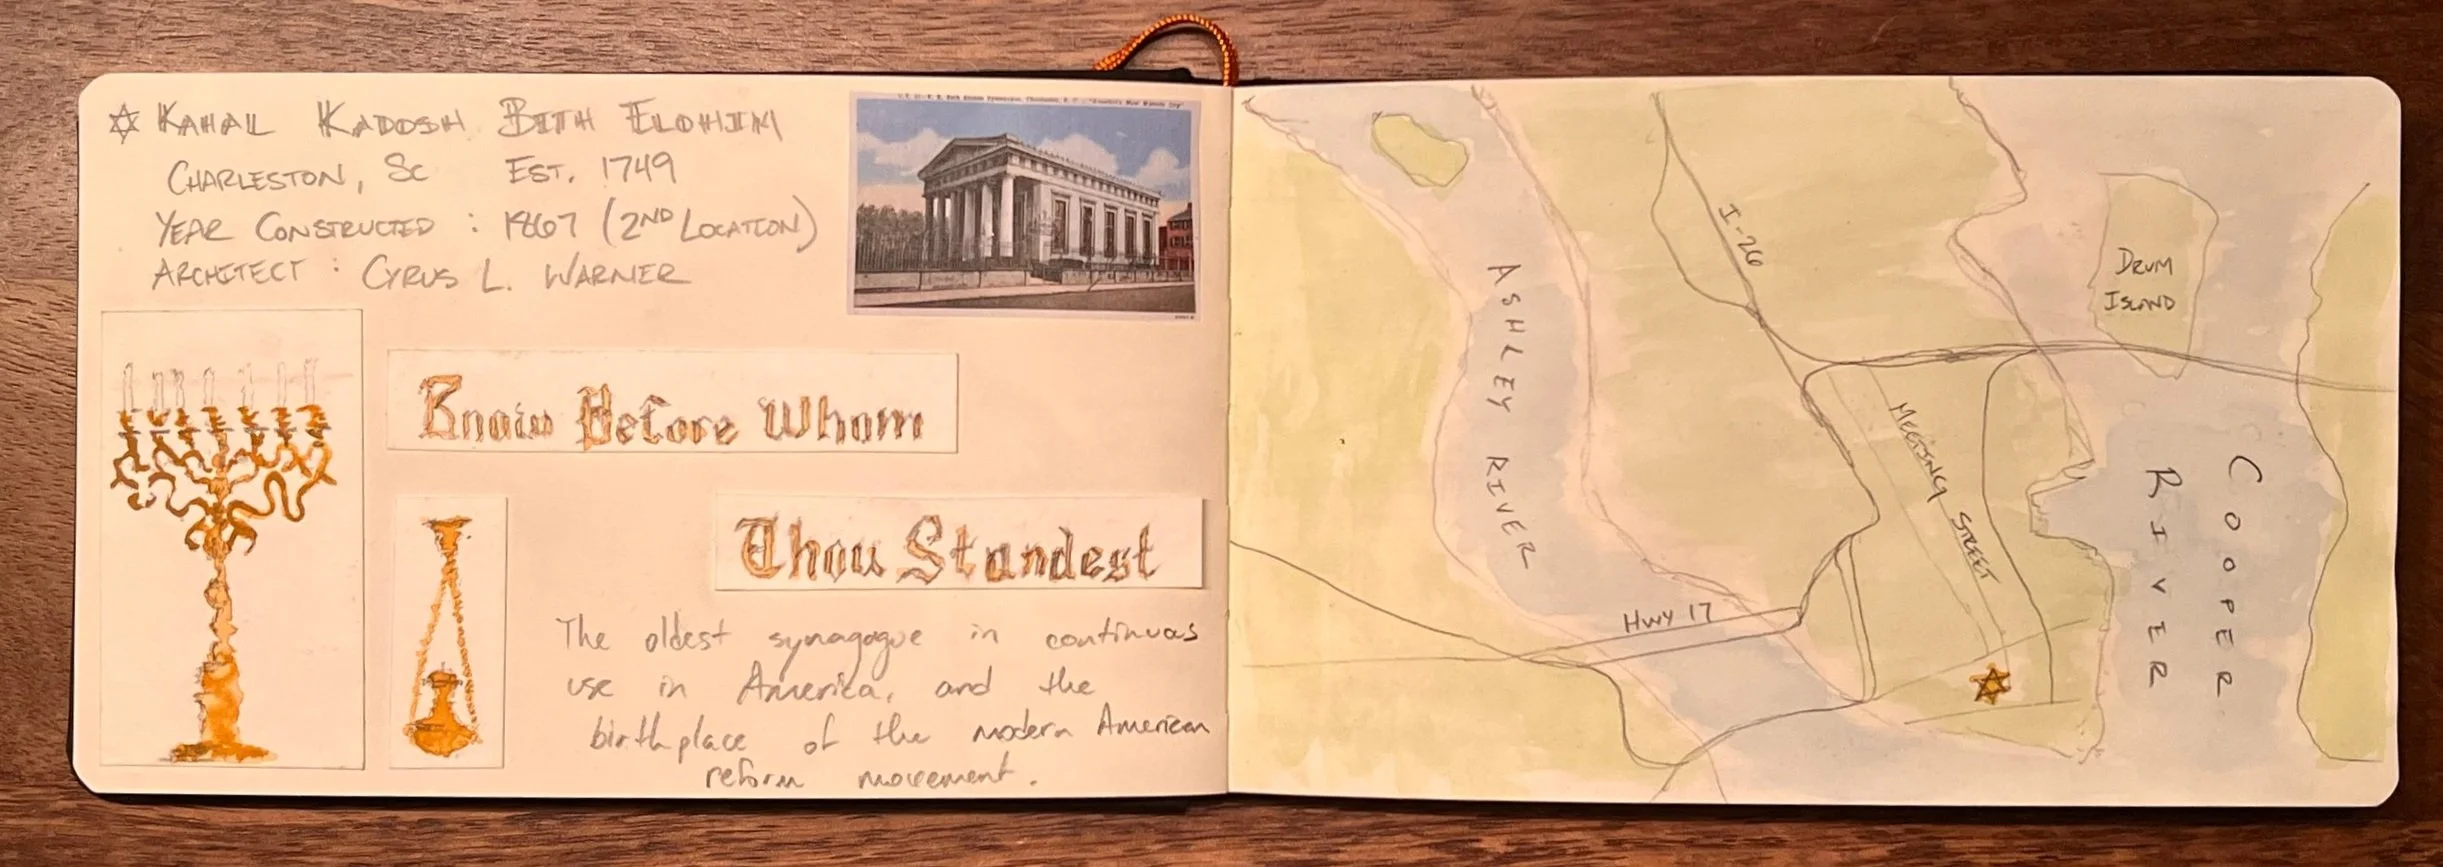 KAHAL KADOSH BETH ELOHIM
CHARLESTON, SC EST. 1749
YEAR CONSTRUCTED : 1867 (2ND LOCATION)
ARCHITECT : CYRUS L. WARNER
Know Before Whom
Thou Standest
The oldest synagogue in continuous
use in America, and the
birthplace of the modern American
reform movement.
I-26
ASHLEY RIVER
DRUM
ISLAND
MEETING STREET
COOPER
RIVER
HWY 17